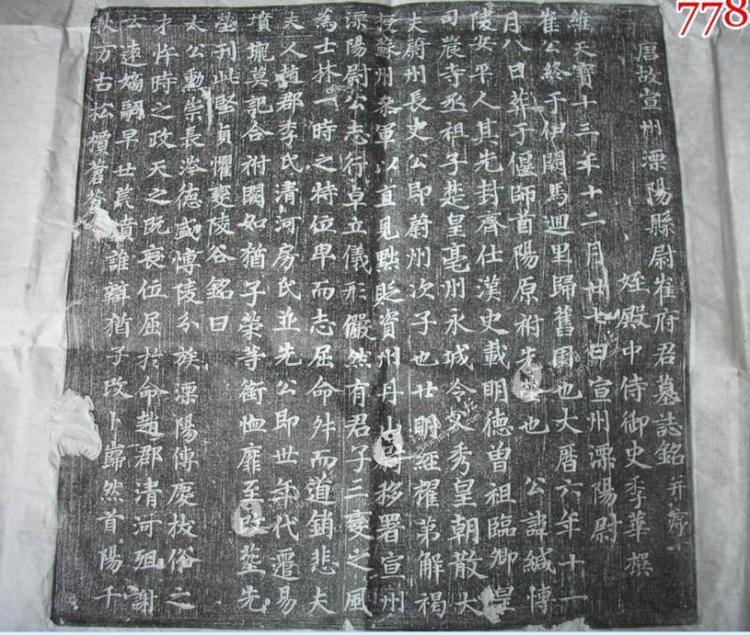 778
唐故宣州溧陽縣尉崔府君墓誌銘并序
姪殿中侍御史季華撰
維天寶十三年十二月廿七日宣州溧陽尉
崔公終于伊闕馬迴里歸舊園也大曆六年十一
月八日葬于偃師首陽原祔先塋也 公諱緘博
陵安平人其先封齊仕漢史載明德曾祖臨卿皇
司農寺丞祖子楚皇亳州永城令父秀皇朝散大
夫蔚州長史公即蔚州次子也廿明經擢第解褐
授蘇州參軍以直見黜貶資州丹山尉移署宣州
溧陽尉公志行卓立儀形儼然有君子三變之風
為士林一時之特位卑而志屈命舛而道銷悲夫
夫人趙郡李氏清河房氏並先公即世年代遷易
墳壠莫記合祔闕如猶子榮等銜恤靡至啟塋先
塋刊此堅貞懼變陵谷銘曰
太公勳崇長岑德盛博陵分族溧陽傳慶拔俗之
才忤時之政天之既喪位屈於命趙郡清河殂謝
云遠嫡嗣早世荒墳誰辯猶子改卜歸然首陽千
秋万古松檟蒼蒼